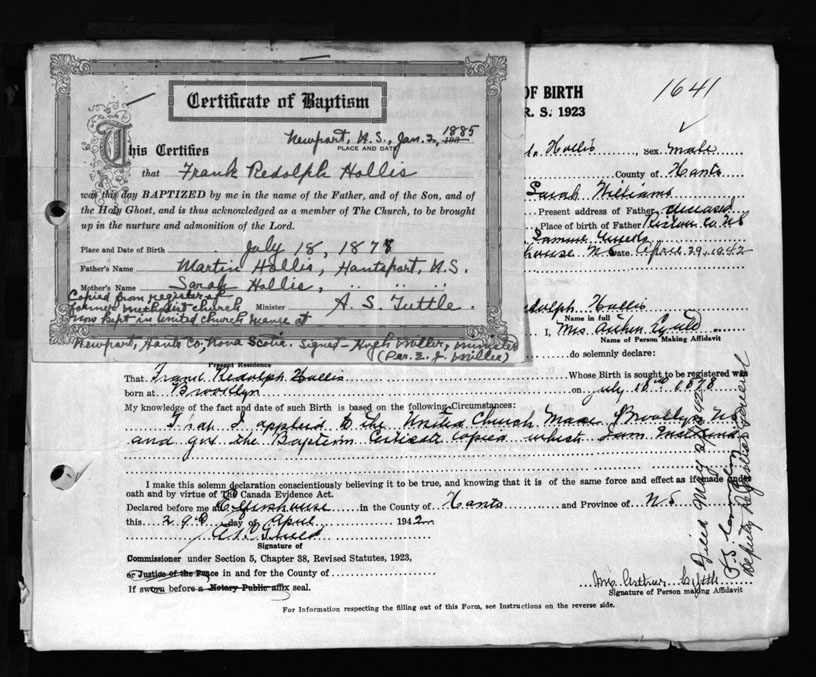 Certificate of Baptism
Newport, N.S., Jan. 2, 1885
190
PLACE AND DATE
This Certifies
that Frank Redolph Hollis
was this day BAPTIZED by me in the name of the Father, and of the Son, and of
the Holy Ghost, and is thus acknowledged as a member of The Church, to be brought
up in the nurture and admonition of the Lord.
Place and Date of Birth July 18, 1878
Father's Name Martin Hollis, Hantsport, N.S.
Mother's Name Sarah Hollis, " "
Minister A. S. Tuttle.
Copied from register of
former Methodist church
now kept in United church manse at
Newport, Hants Co., Nova Scotia. Signed - Hugh Miller, Minister
(Per. E. J. Miller)
OF BIRTH
R. S. 1923
1641
Hollis, Sex male
County of Hants
Sarah Williams
Present address of Father, deceased
Place of birth of Father
house N.S. Date April 29, 1942
dolph Hollis
Name in full
I, Mrs.
Name of Person Making Affidavit
Present Residence
do solemnly declare:
That Frank Redolph Hollis Whose Birth is sought to be registered was
born at Brooklyn on July 18th 1878
My knowledge of the fact and date of such Birth is based on the following Circumstances:
That I applied to the United Church Brooklyn NS
and got the Baptism Certificate Copied which
I make this solemn declaration conscientiously believing it to be true, and knowing that it is of the same force and effect as if made under
oath and by virtue of The Canada Evidence Act.
Declared before me at in the County of Hants and Province of N.S
this 29th day of April 1942
Signature of
Commissioner under Section 5, Chapter 38, Revised Statutes, 1923,
or Justice of the Peace in and for the County of
If sworn before a Notary Public affix seal.
Mrs Arthur
Signature of Person making Affidavit
For Information respecting the filling out of this Form, see Instructions on the reverse side.
Filed May
Deputy Registrar General